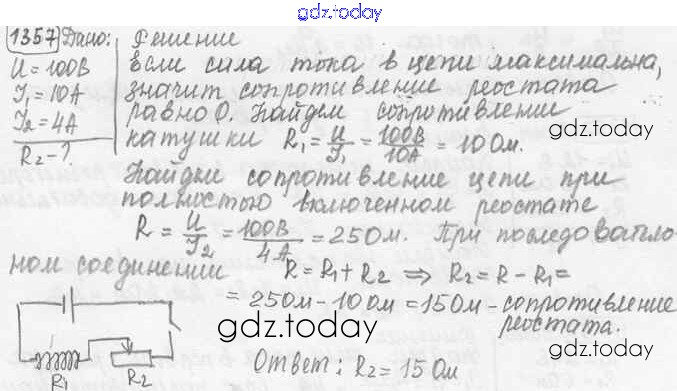 gdz.today
1357 Дано: Решение
U = 100В Если сила тока в цепи максимальна,
I₁ = 10А значит сопротивление реостата
I₂ = 4А равно 0. Найдем сопротивлении
R₂ - ? катушки R₁ = U/I₁ = 100В/10А = 10 Ом.
gdz.today
Найдем сопротивление цепи при
полностью включенном реостате
R = U/I₂ = 100В/4А = 25 Ом. При последователь-
ном соединении R = R₁ + R₂ ⇒ R₂ = R - R₁ =
= 25 Ом - 10 Ом = 15 Ом - сопротивление
реостата.
gdz.today
R₁ R₂
Ответ: R₂ = 15 Ом